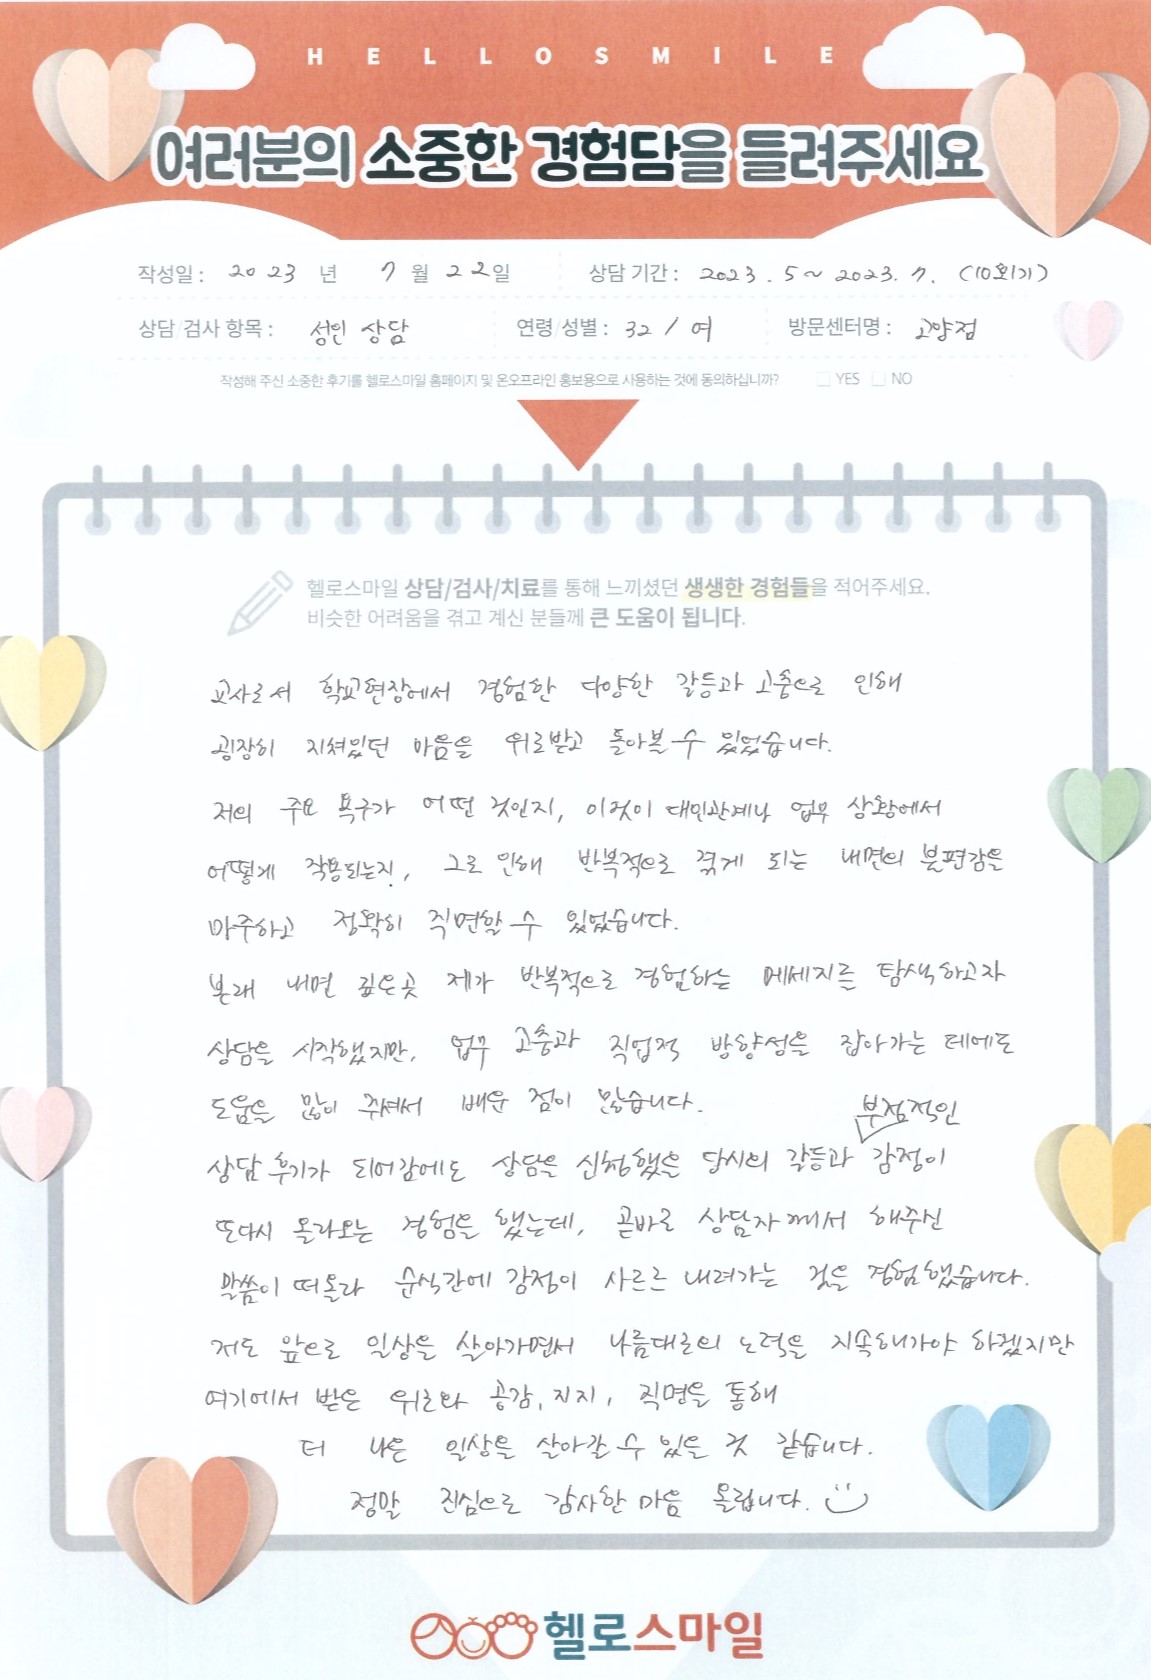 HELLOSMILE
여러분의 소중한 경험담을 들려주세요
작성일 : 2023 년 7 월 22일 상담 기간 : 2023. 5 ~ 2023. 7. (10회기)
상담/검사 항목 : 성인 상담 연령/성별 : 32 / 여 방문센터명 : 고양점
작성해 주신 소중한 후기를 헬로스마일 홈페이지 및 온오프라인 홍보용으로 사용하는 것에 동의하십니까? YES NO
헬로스마일 상담/검사/치료를 통해 느끼셨던 생생한 경험들을 적어주세요.
비슷한 어려움을 겪고 계신 분들께 큰 도움이 됩니다.
교사로서 학교현장에서 경험한 다양한 갈등과 고충으로 인해
굉장히 지쳐있던 마음을 위로받고 돌아볼 수 있었습니다.
저의 주요 욕구가 어떤 것인지, 이것이 대인관계나 업무 상황에서
어떻게 작용되는지, 그로 인해 반복적으로 겪게 되는 내면의 불편감을
마주하고 정확히 직면할 수 있었습니다.
본래 내면 깊은곳 제가 반복적으로 경험하는 메세지를 탐색하고자
상담을 시작했지만, 업무 고충과 직업적 방향성을 잡아가는 데에도
도움을 많이 주셔서 배운 점이 많습니다.
상담 후기가 되어감에도 상담을 신청했을 당시의 갈등과 부정적인 감정이
또다시 올라오는 경험을 했는데, 곧바로 상담자께서 해주신
말씀이 떠올라 순식간에 감정이 사르르 내려가는 것을 경험했습니다.
저도 앞으로 일상을 살아가면서 나름대로의 노력을 지속해가야 하겠지만
여기에서 받은 위로와 공감, 지지, 직면을 통해
더 나은 일상을 살아갈 수 있을 것 같습니다.
정말 진심으로 감사한 마음 올립니다.
헬로스마일